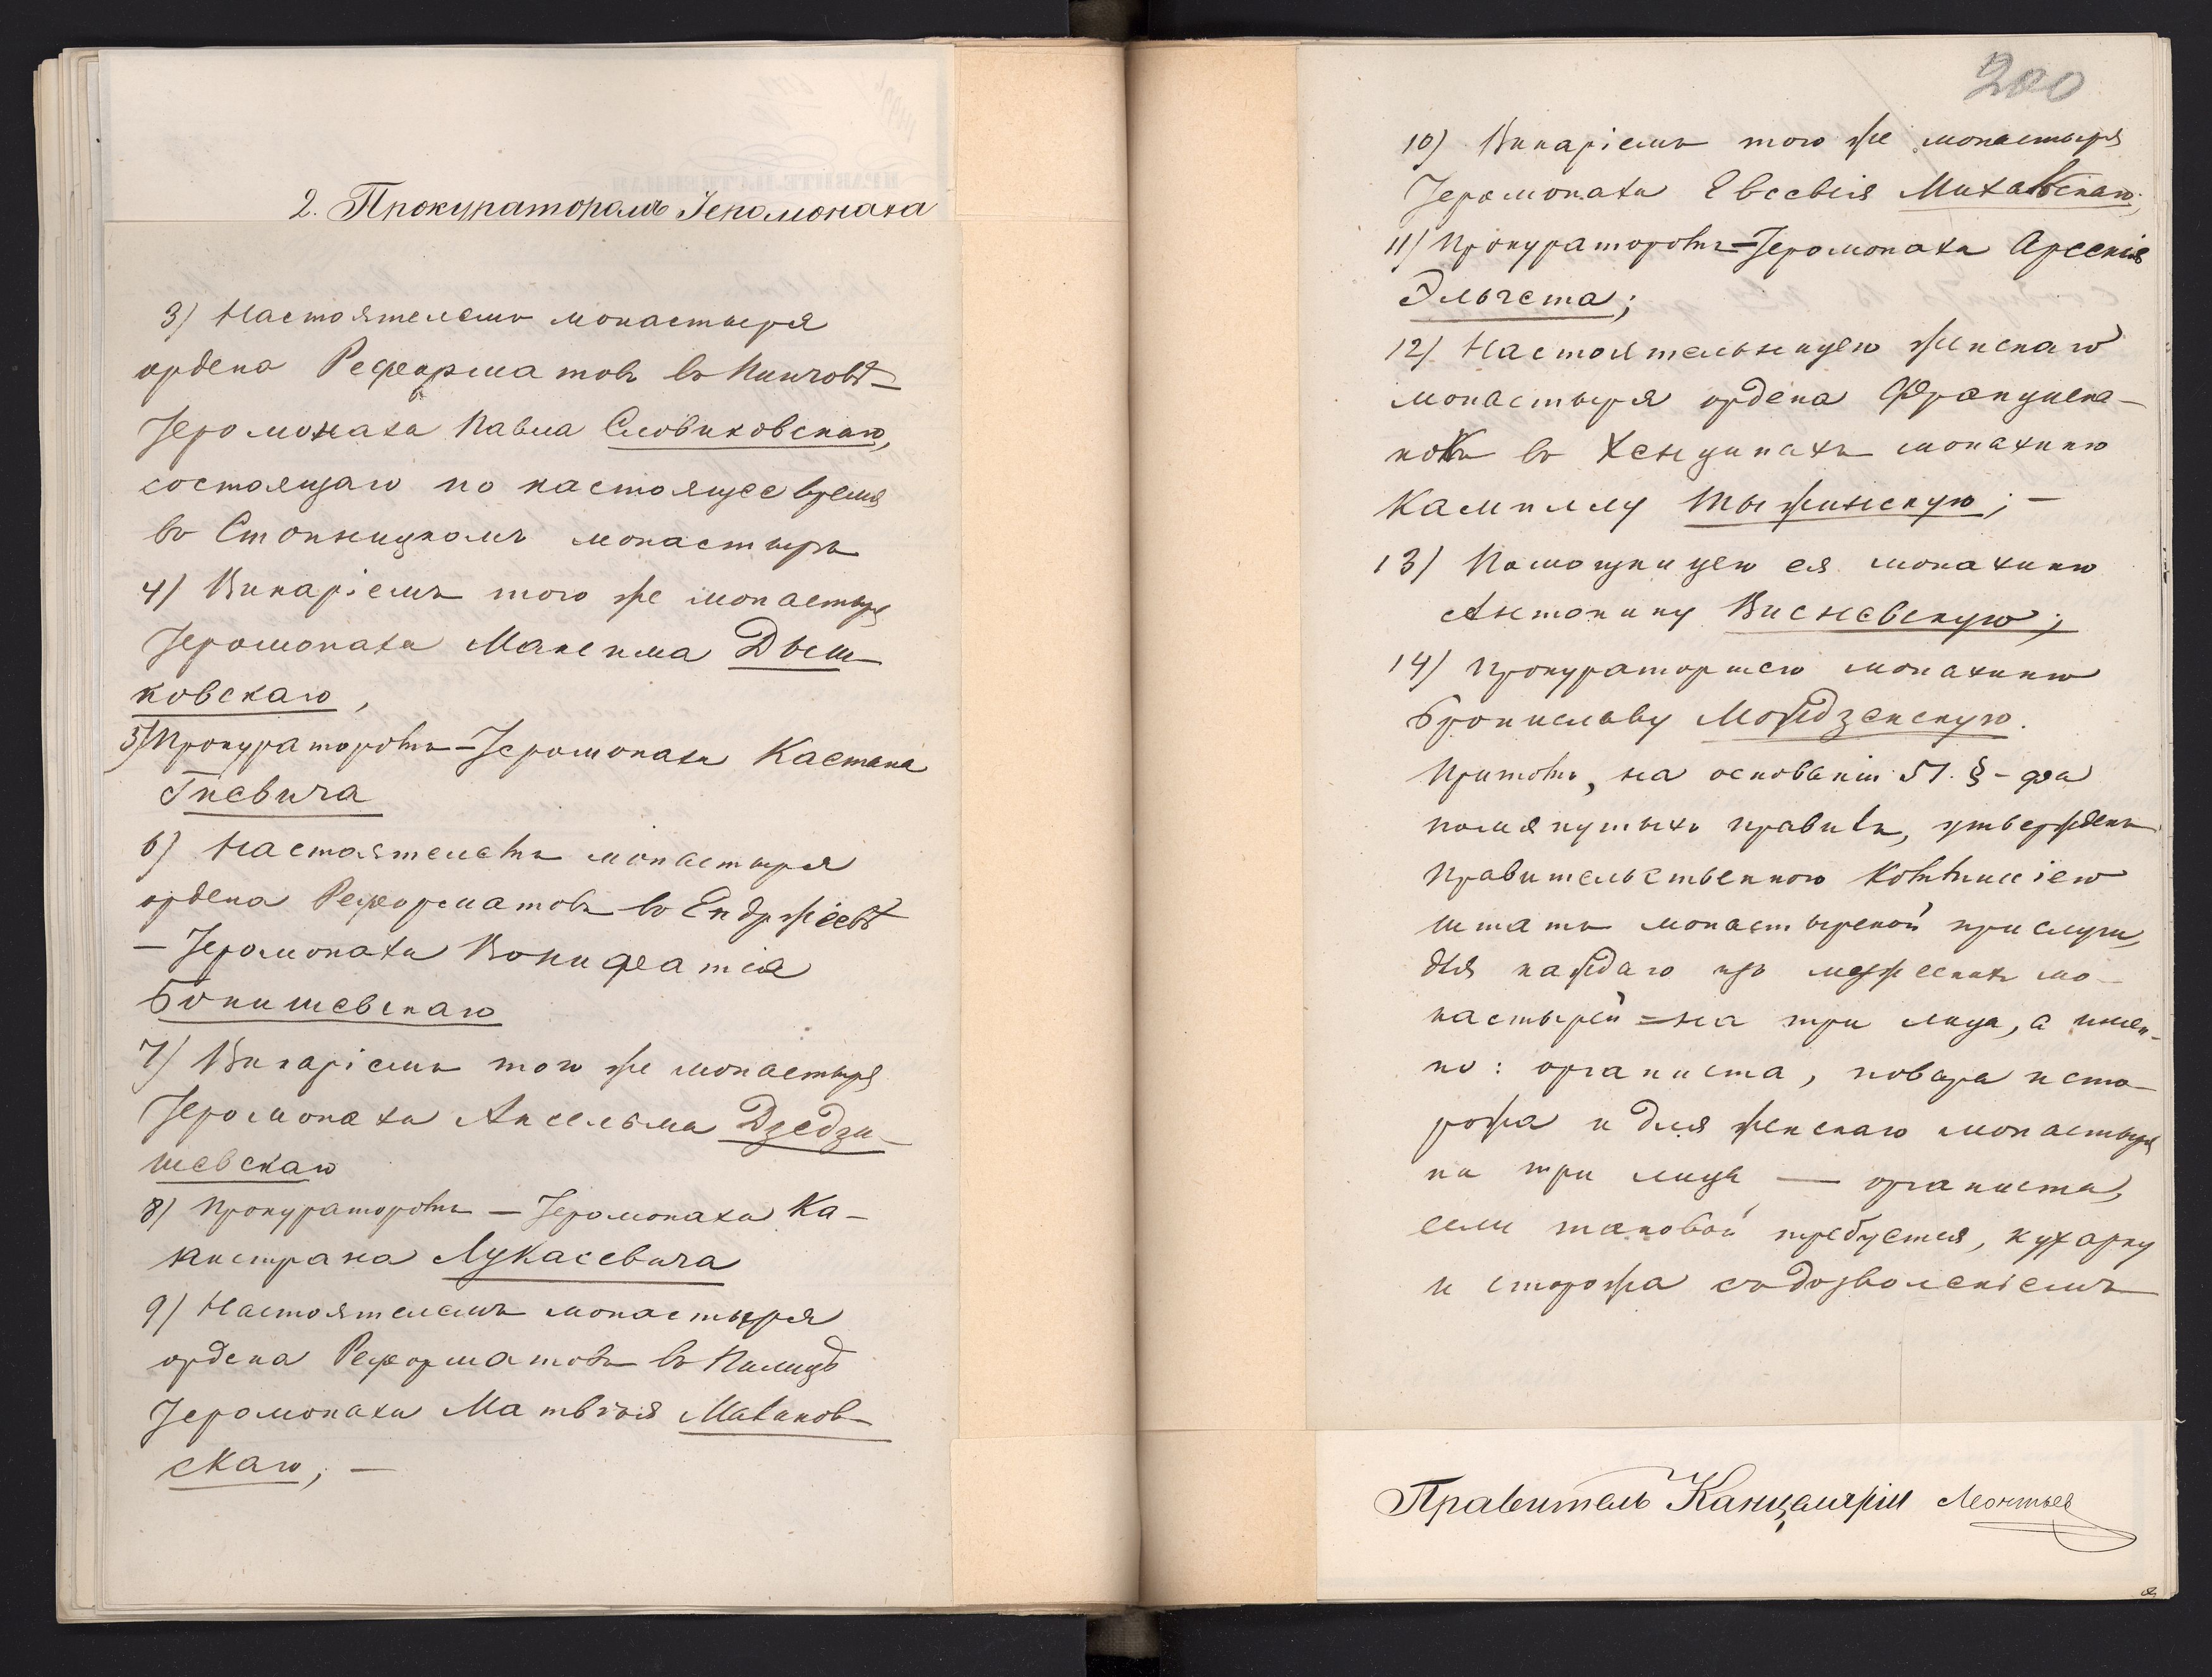 2. Прокураторомъ Іеромонаха
3) Настоятелемъ монастыря
ордена Реформатовъ въ Пинчовѣ –
Іеромонаха Павла Словиковскаго,
состоящаго по настоящее время
въ Стопницкомъ монастырѣ
4) Викаріемъ того же монастыря
Іеромонаха Максима Дыш-
ковскаго,
5) Прокураторомъ – Іеромонаха Каетана
Гневича
6) Настоятелемъ монастыря
ордена Реформатовъ въ Ендржеевѣ
– Іеромонаха Вонифатія
Бонишевскаго
7) Викаріемъ того же монастыря
Іеромонаха Ансельма Дзедзи-
шевскаго
8) Прокураторомъ – Іеромонаха Ка-
пистрана Лукасевича
9) Настоятелемъ монастыря
ордена Реформатовъ въ Пилицѣ
Іеромонаха Матвѣя Маковскаго; –
200
10) Викаріемъ того же монастыря
Іеромонаха Евсевія Михальскаго;
11) Прокураторомъ – Іеромонаха Арсенія
Эльчета;
12) Настоятельницею женскаго
монастыря ордена Францыска-
нокъ въ Хенцинахъ монахиню
Камиллу Тыжинскую; –
13) Помощницею ея монахиню
Антонину Висневскую;
14) Прокураторшею монахиню
Брониславу Мойдзенскую.
Притомъ, на основаніи 51. §-фа
помянутыхъ правилъ, утвержденъ
Правительственною Коммиссіею
штатъ монастырской прислуги,
для каждаго изъ мужескихъ мо-
настырей = на три лица, а имен-
но: органиста, повара и сто-
рожа и для женскаго монастыря
на три лица — органиста,
если таковой требуется, кухарку
и сторожа съ дозволеніемъ
Правитель Канцеляріи Леонтьев